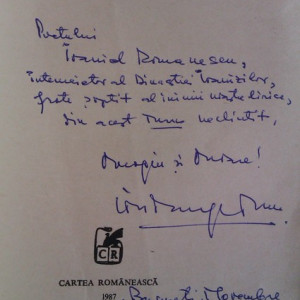 Poetului
Ioanid Romanescu,
întemeietor al Dinastiei Ioanizilor,
frate șoptit al inimii
din acest Turn neclintit,
Dragoș și Doina!
CR
CARTEA ROMÂNEASCĂ
1987
București, Noiembrie